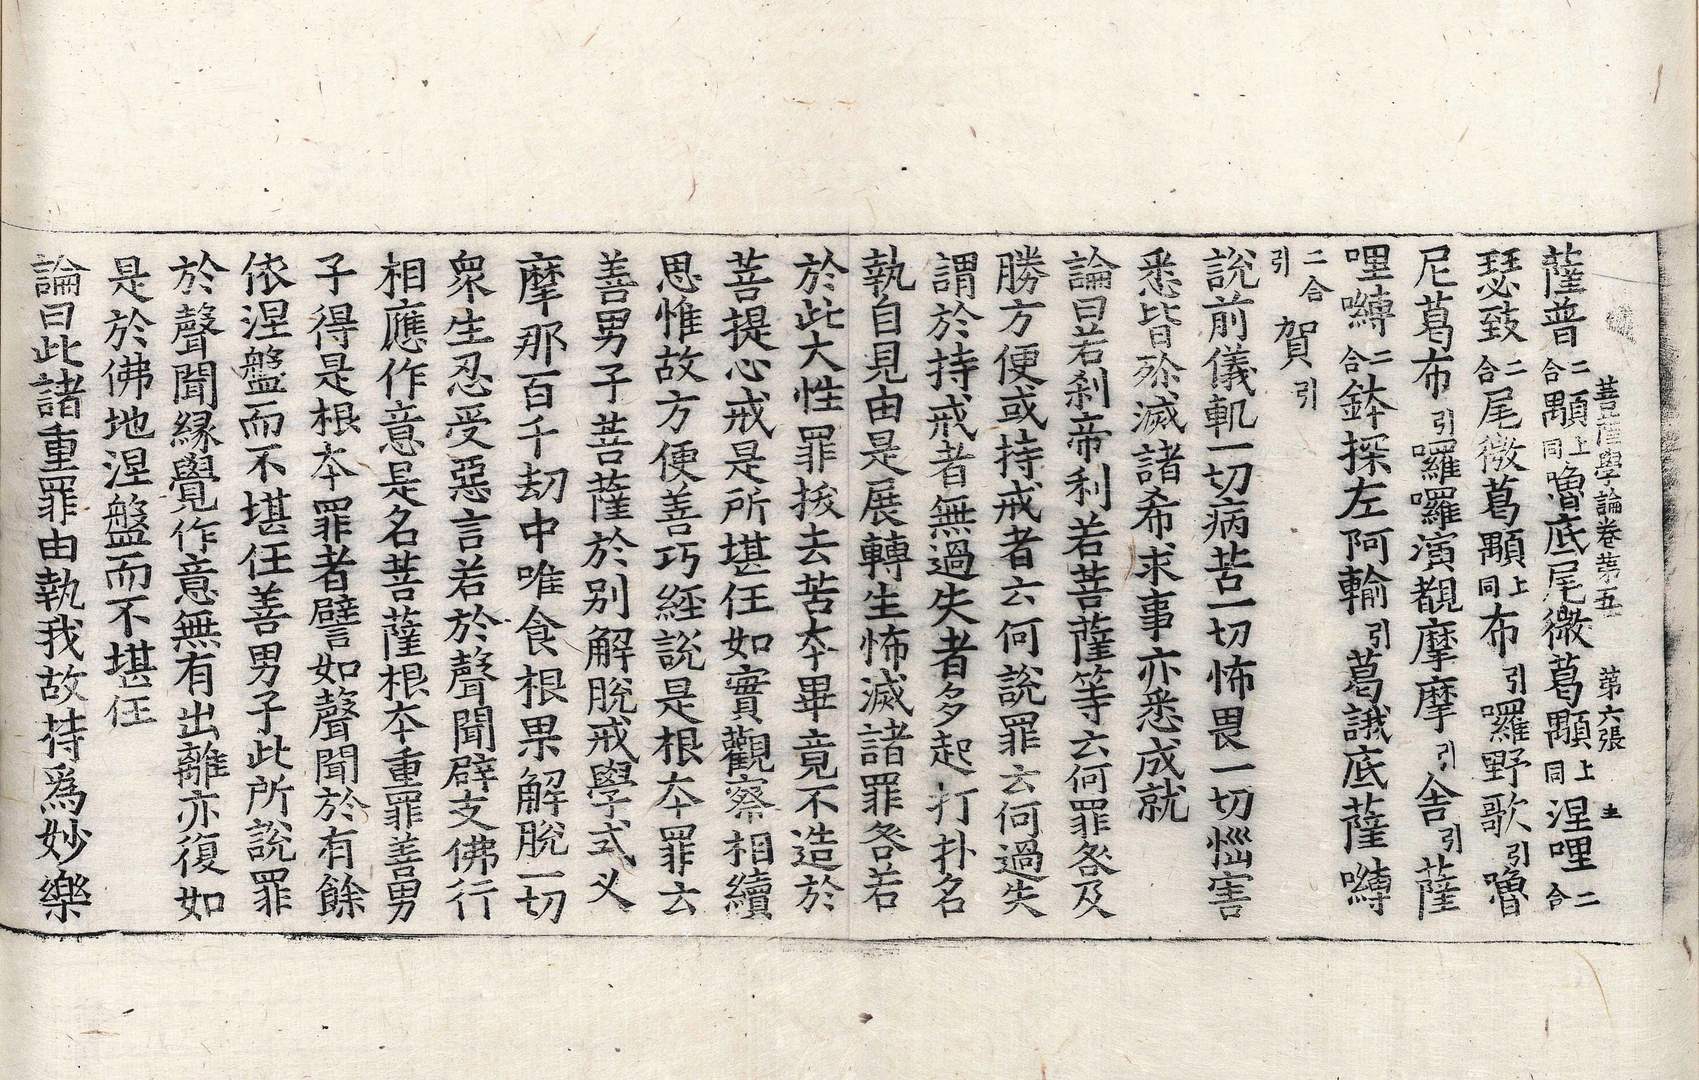 菩薩學論卷苐五 苐六張 圡
薩普二合顒上同嚕底尾微葛顒上同涅哩二合
瑟致二合尾微葛顒上同布引囉野歌引嚕
尼葛布引囉囉演覩摩摩引舍引薩
哩嚩二合鉢探左阿輸引葛誐底薩嚩
二合引賀引
說前儀軌一切病苦一切怖畏一切惱害
悉皆殄滅諸希求事亦悉成就
論曰若刹帝利若菩薩等云何罪咎及
勝方便或持戒者云何說罪云何過失
謂於持戒者無過失者多起打扑名
執自見由是展轉生怖滅諸罪咎若
於此大性罪拔去苦本畢竟不造於
菩提心戒是所堪任如實觀察相續
思惟故方便善巧經說是根本罪云
善男子菩薩於別解脫戒學式义
摩那百千劫中唯食根果解脫一切
衆生忍受惡言若於聲聞辟支佛行
相應作意是名菩薩根本重罪善男
子得是根本罪者譬如聲聞於有餘
依涅盤而不堪任善男子此所說罪
於聲聞緣覺作意無有出離亦復如
是於佛地涅盤而不堪任
論曰此諸重罪由執我故持爲妙樂